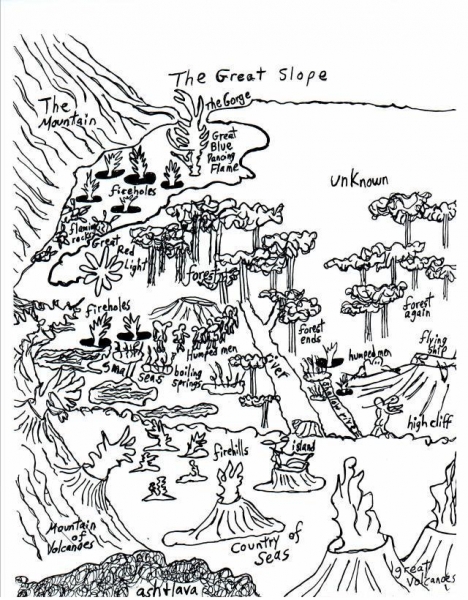 The Great Slope
The
Mountain
The Gorge
Great
Blue
Dancing
Flame
unknown
fireholes
flaming
rocks
Great
Red
Light
forest
fireholes
forest
again
forest
ends
flying
ship
Humped men
humped men
small
seas
boiling
springs
river
high cliff
firehills
island
Mountain
of
Volcanoes
Country of
Seas
great
volcanoes
ash+lava